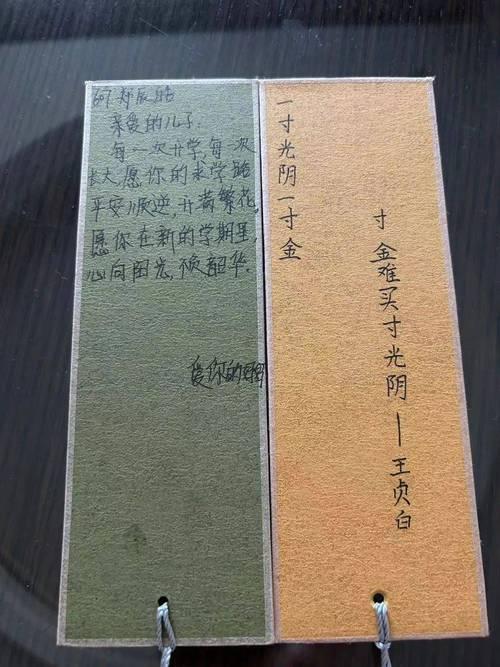 607 郑辰皓
亲爱的儿子:
每一次升学每一次
长大愿你的求学路
平安顺逆,升黄繁花,
愿你在新的学期里,
心向阳光,不负韶华.
爱你的
一寸光阴一寸金
寸金难买寸光阴—王贞白